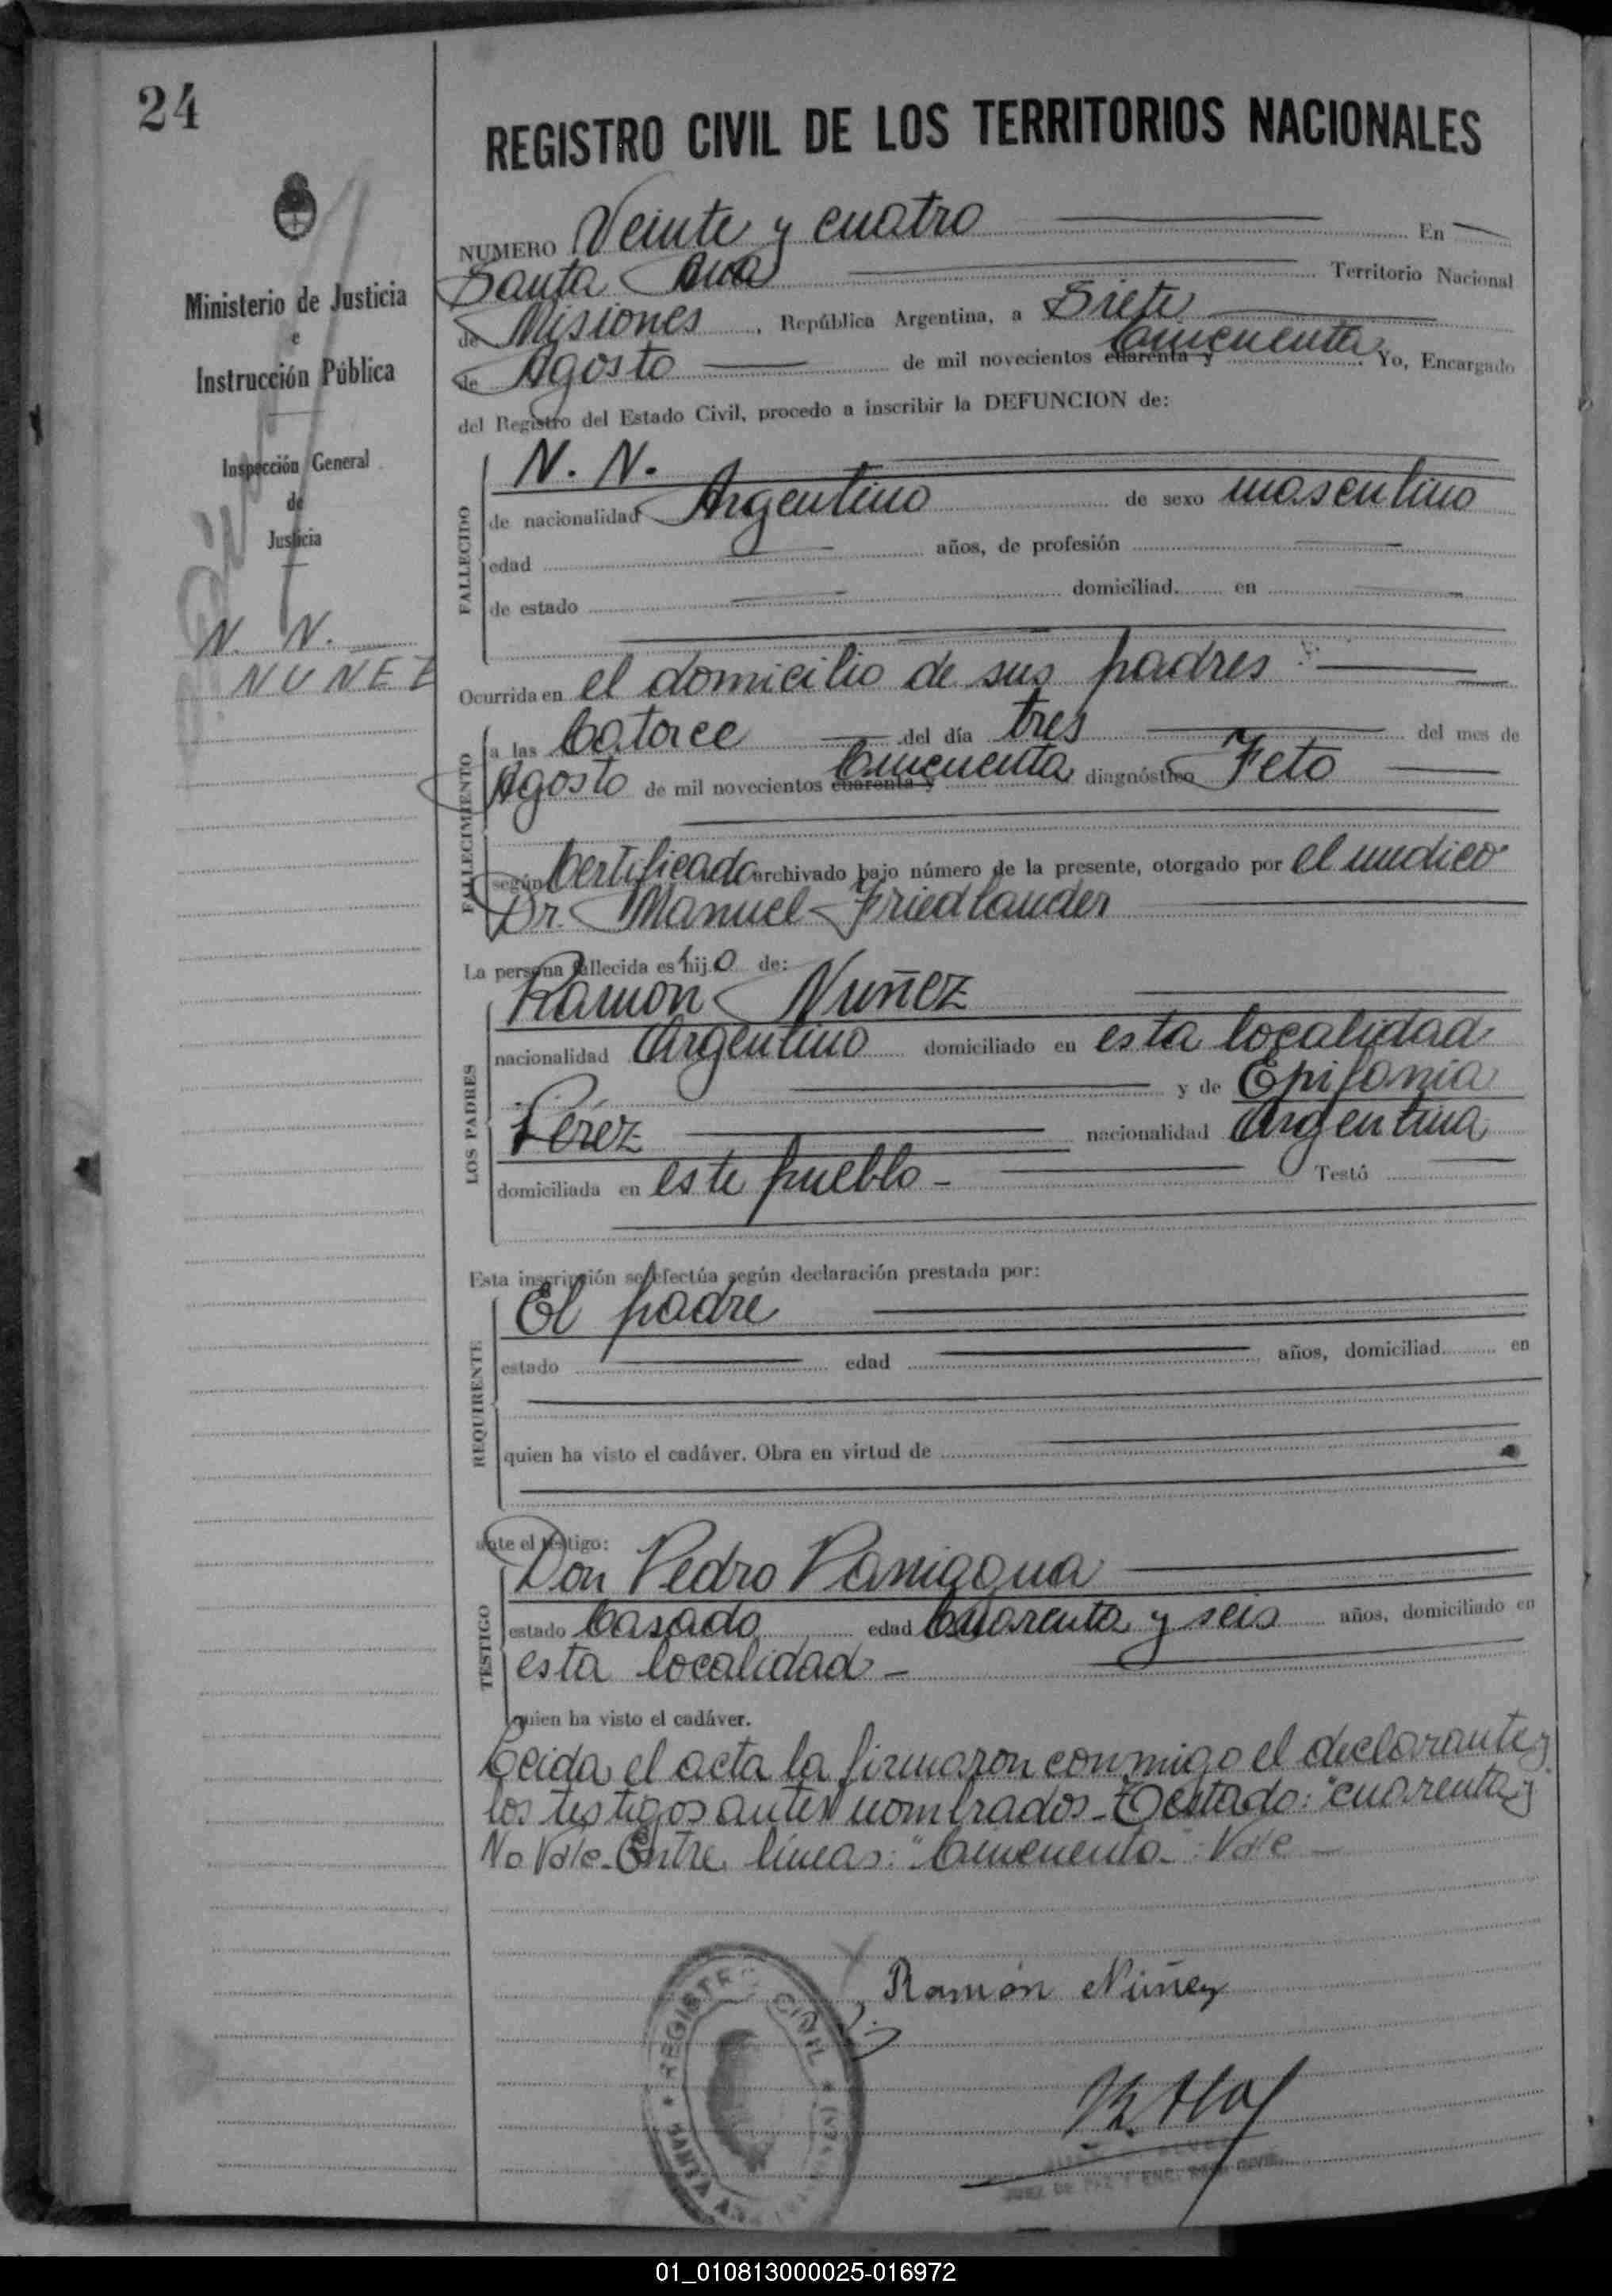 24
REGISTRO CIVIL DE LOS TERRITORIOS NACIONALES
Ministerio de Justicia
e
Instrucción Pública
Inspección General
de
Justicia
N. N.
NUÑEZ
NUMERO Veinte y cuatro En
Santa Ana Territorio Nacional
de Misiones, República Argentina, a Siete
de Agosto de mil novecientos cuarenta y Cincuenta Yo, Encargado
del Registro del Estado Civil, procedo a inscribir la DEFUNCION de:
FALLECIDO
N. N.
de nacionalidad Argentino de sexo masculino
edad años, de profesión
de estado domiciliad en
Ocurrida en el domicilio de sus padres
FALLECIMIENTO
a las Catorce del día tres del mes de
Agosto de mil novecientos cuarenta y Cincuenta diagnóstico Feto
según Certificado archivado bajo número de la presente, otorgado por el medico
Dr. Manuel Friedlander
La persona fallecida es hijo de:
LOS PADRES
Ramon Nuñez
nacionalidad Argentino domiciliado en esta localidad
y de Epifania
Pérez nacionalidad Argentina
domiciliada en este pueblo - Testó
Esta inscripción se efectúa según declaración prestada por:
REQUIRENTE
El padre
estado edad años, domiciliad en
quien ha visto el cadáver. Obra en virtud de
ante el testigo:
TESTIGO
Don Pedro Paniagua
estado Casado edad Cuarenta y seis años, domiciliado en
esta localidad -
quien ha visto el cadáver.
Leida el acta la firmaron conmigo el declarante y
los testigos antes nombrados - Testado: "cuarenta y"
No Vale - Entre lineas: "Cincuenta" : Vale -
Ramón Núñez
REGISTRO CIVIL
SANTA ANA
JUEZ DE PAZ Y ENC. REG. CIVIL
01_010813000025-016972